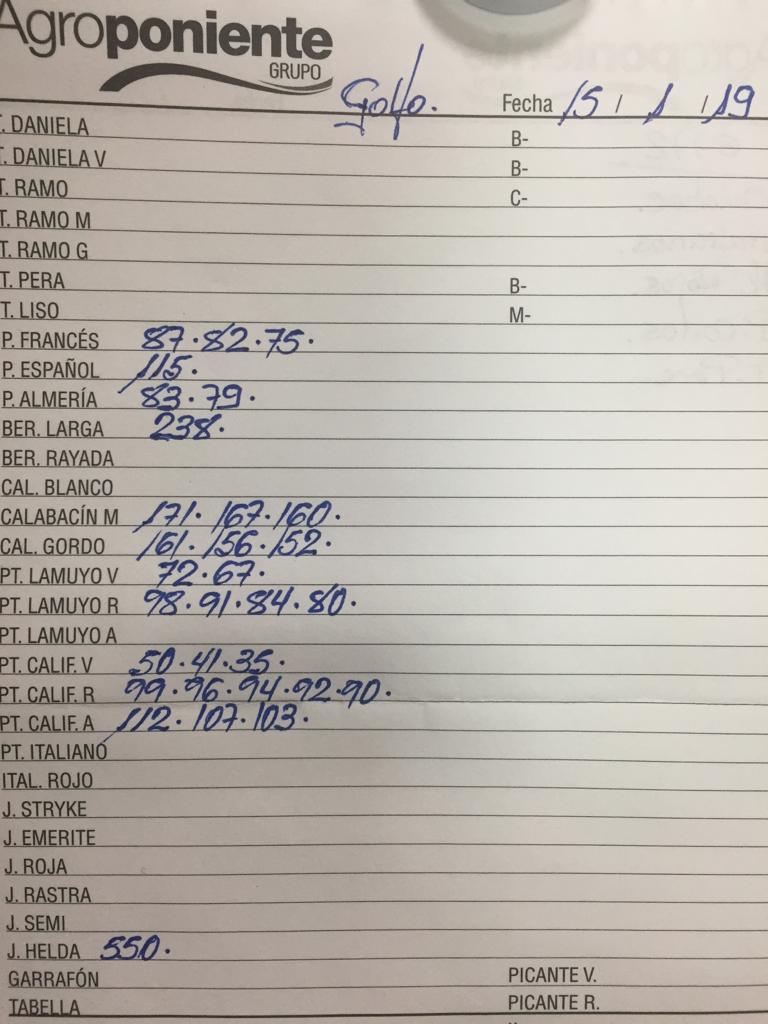 Agroponiente
GRUPO
Golfo. Fecha 15 / 1 / 19
T. DANIELA B-
T. DANIELA V B-
T. RAMO C-
T. RAMO M
T. RAMO G
T. PERA B-
T. LISO M-
P. FRANCÉS 87.82.75.
P. ESPAÑOL 115.
P. ALMERÍA 83.79.
BER. LARGA 238.
BER. RAYADA
CAL. BLANCO
CALABACÍN M 171.167.160.
CAL. GORDO 161.156.152.
PT. LAMUYO V 72.67.
PT. LAMUYO R 98.91.84.80.
PT. LAMUYO A
PT. CALIF. V 50.41.35.
PT. CALIF. R 99.96.94.92.90.
PT. CALIF. A 112.107.103.
PT. ITALIANO
ITAL. ROJO
J. STRYKE
J. EMERITE
J. ROJA
J. RASTRA
J. SEMI
J. HELDA 550.
GARRAFÓN PICANTE V.
TABELLA PICANTE R.